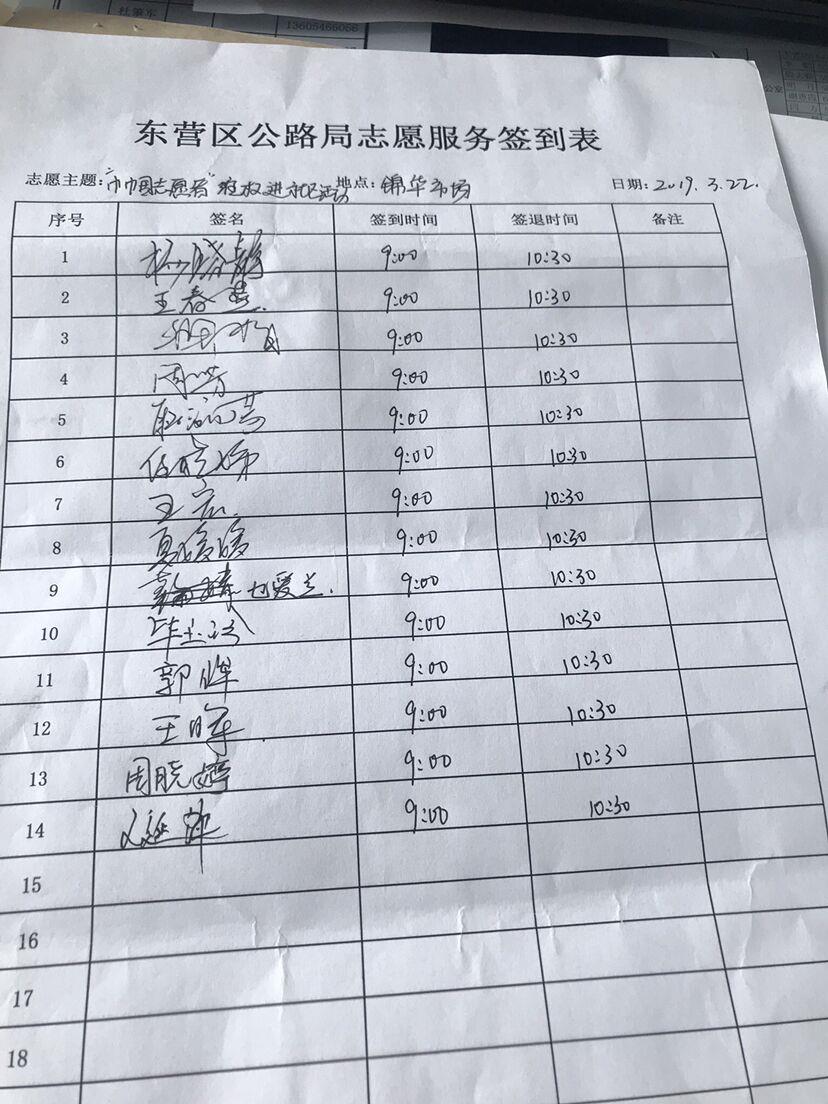 杜肇军 13605466056
东营区公路局志愿服务签到表
志愿主题:"巾帼志愿者"积极进社区活动 地点:锦华市场 日期:2019.3.22.
序号 签名 签到时间 签退时间 备注
1 杨晓静 9:00 10:30
2 王春兰 9:00 10:30
3 9:00 10:30
4 周芳 9:00 10:30
5 9:00 10:30
6 9:00 10:30
7 王宏 9:00 10:30
8 夏媛媛 9:00 10:30
9 爱兰. 9:00 10:30
10 9:00 10:30
11 郭晖 9:00 10:30
12 王晖. 9:00 10:30
13 周晓婷 9:00 10:30
14 9:00 10:30
15
16
17
18